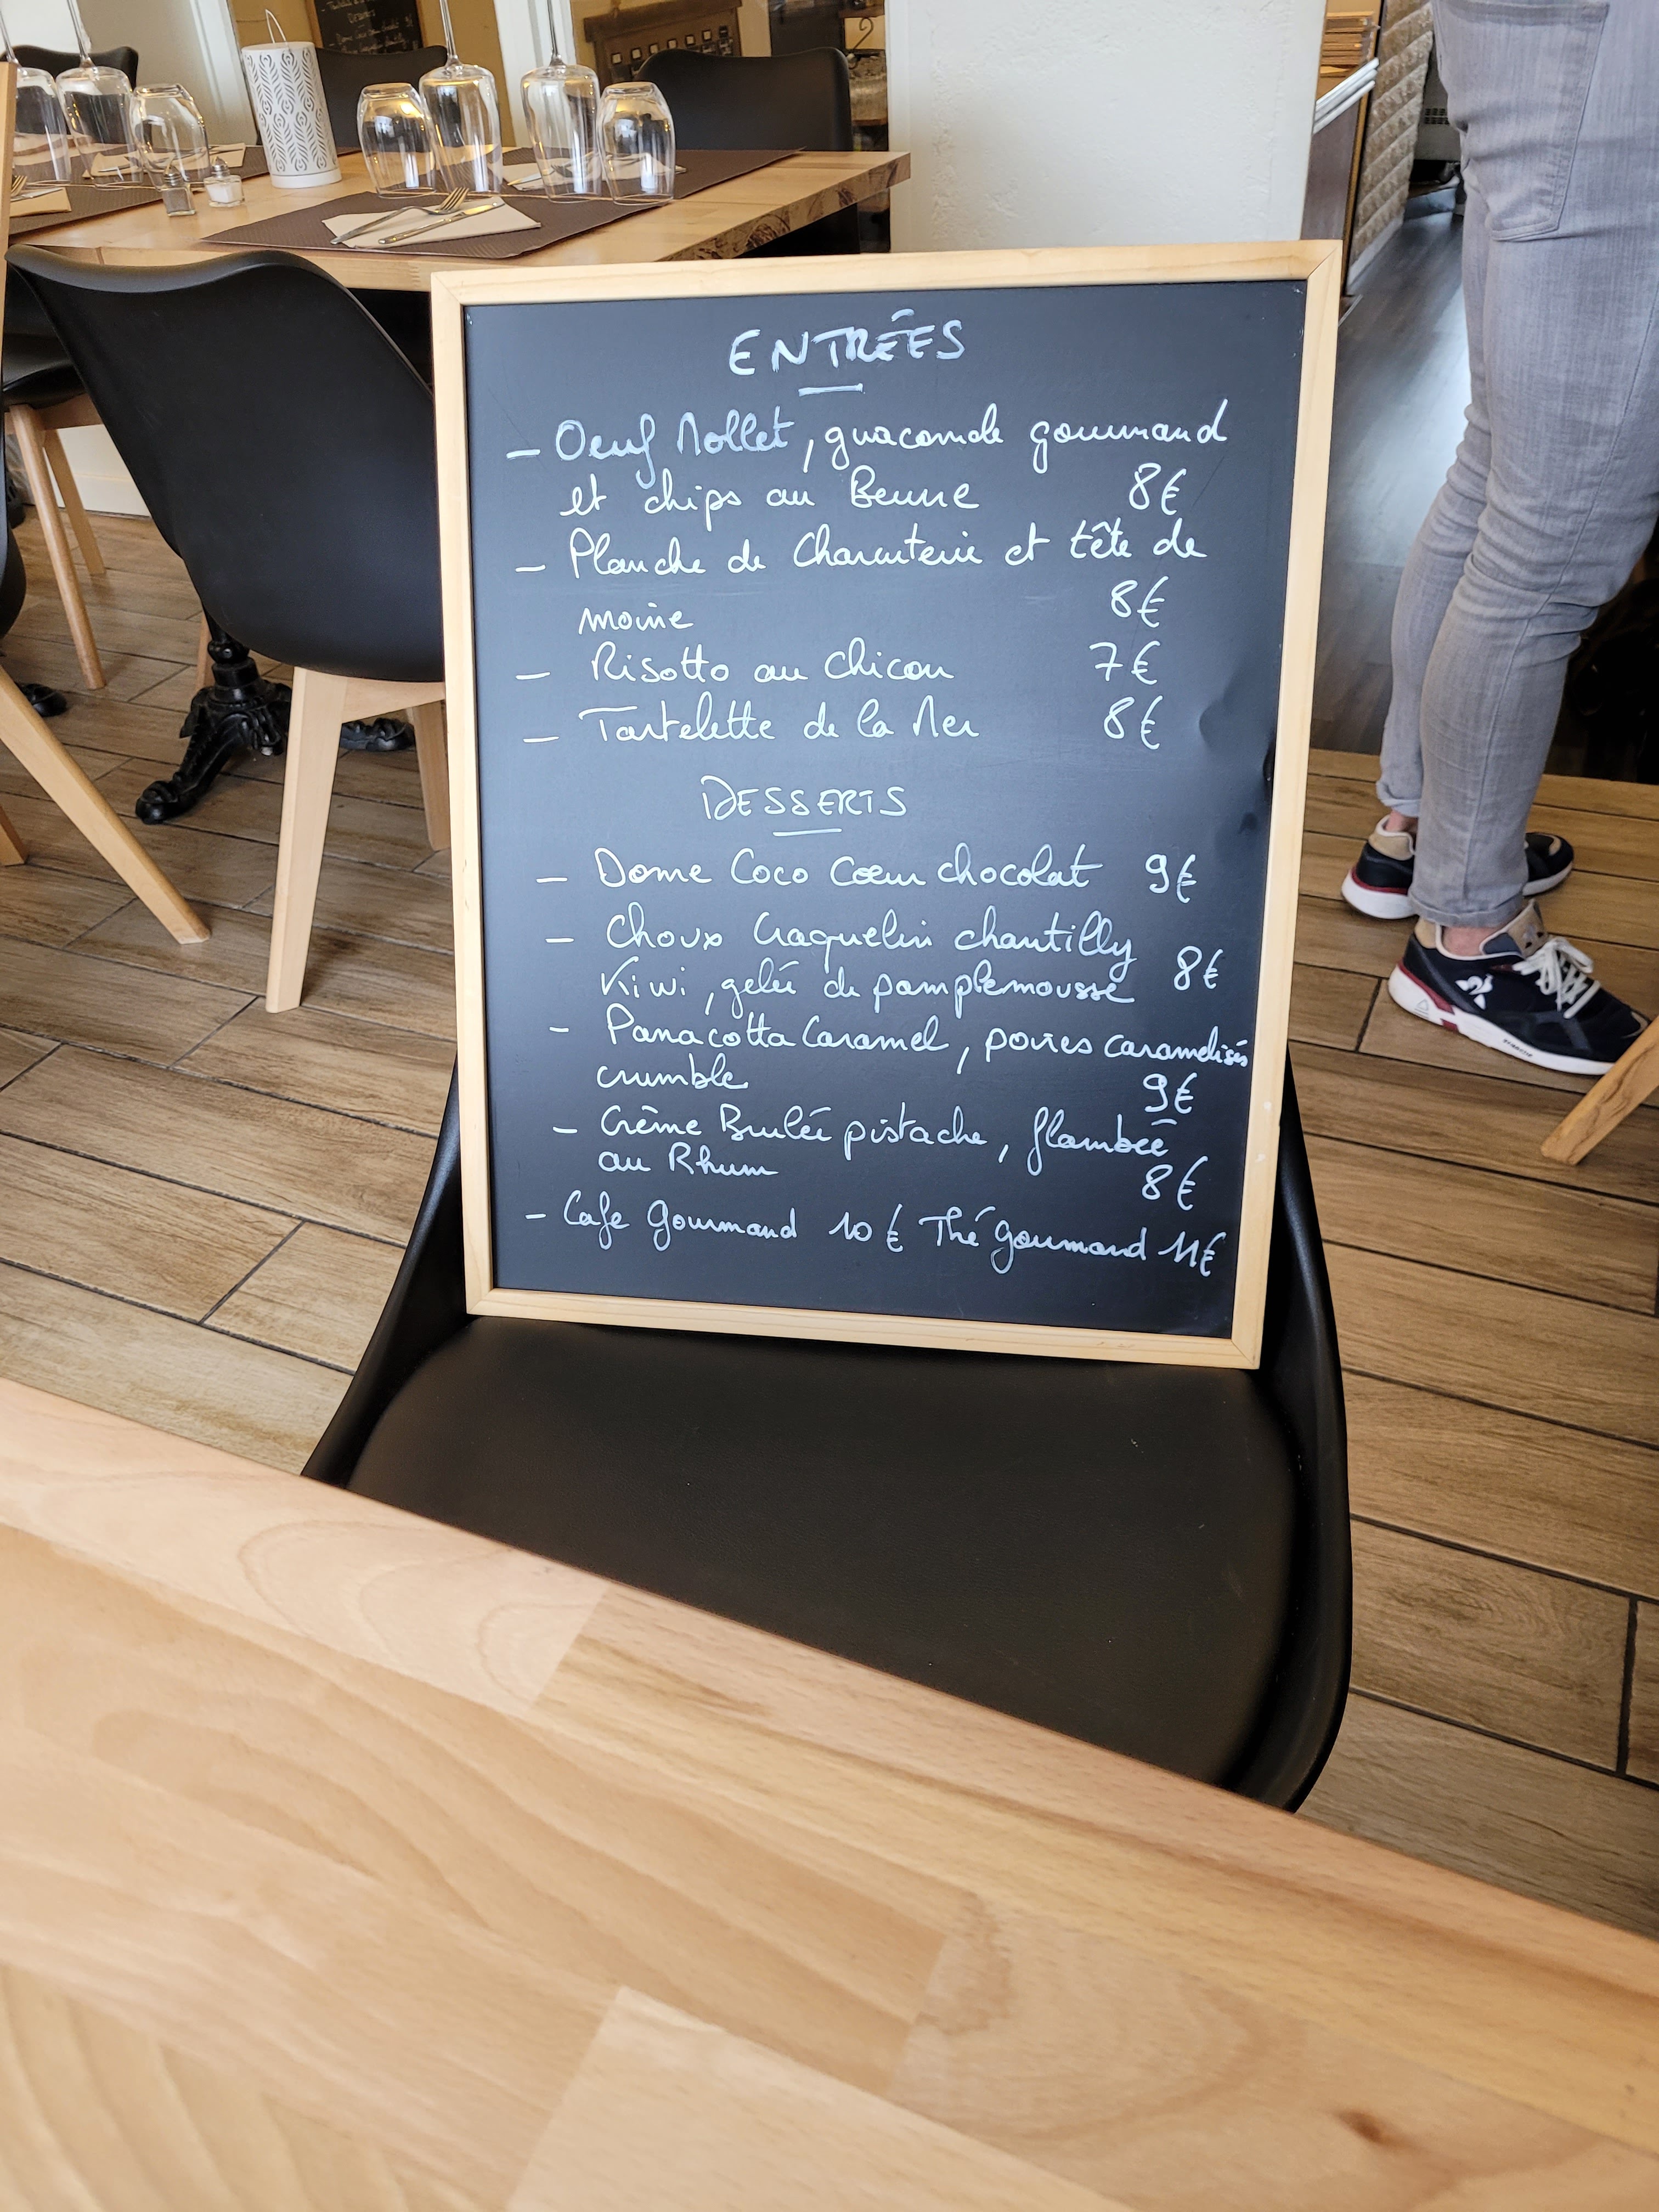 ENTRÉES
- Oeuf Mollet, guacamole gourmand
et chips au Beurre 8€
- Planche de Charcuterie et tête de
moine 8€
- Risotto au chicon 7€
- Tartelette de la Mer 8€
DESSERTS
- Dome Coco Coeur chocolat 9€
- Choux Craquelin chantilly
Kiwi, gelée de pamplemousse 8€
- Panacotta Caramel, poires caramelisés
crumble 9€
- Crème Brulée pistache, flambée
au Rhum 8€
- Cafe Gourmand 10€ Thé Gourmand 11€